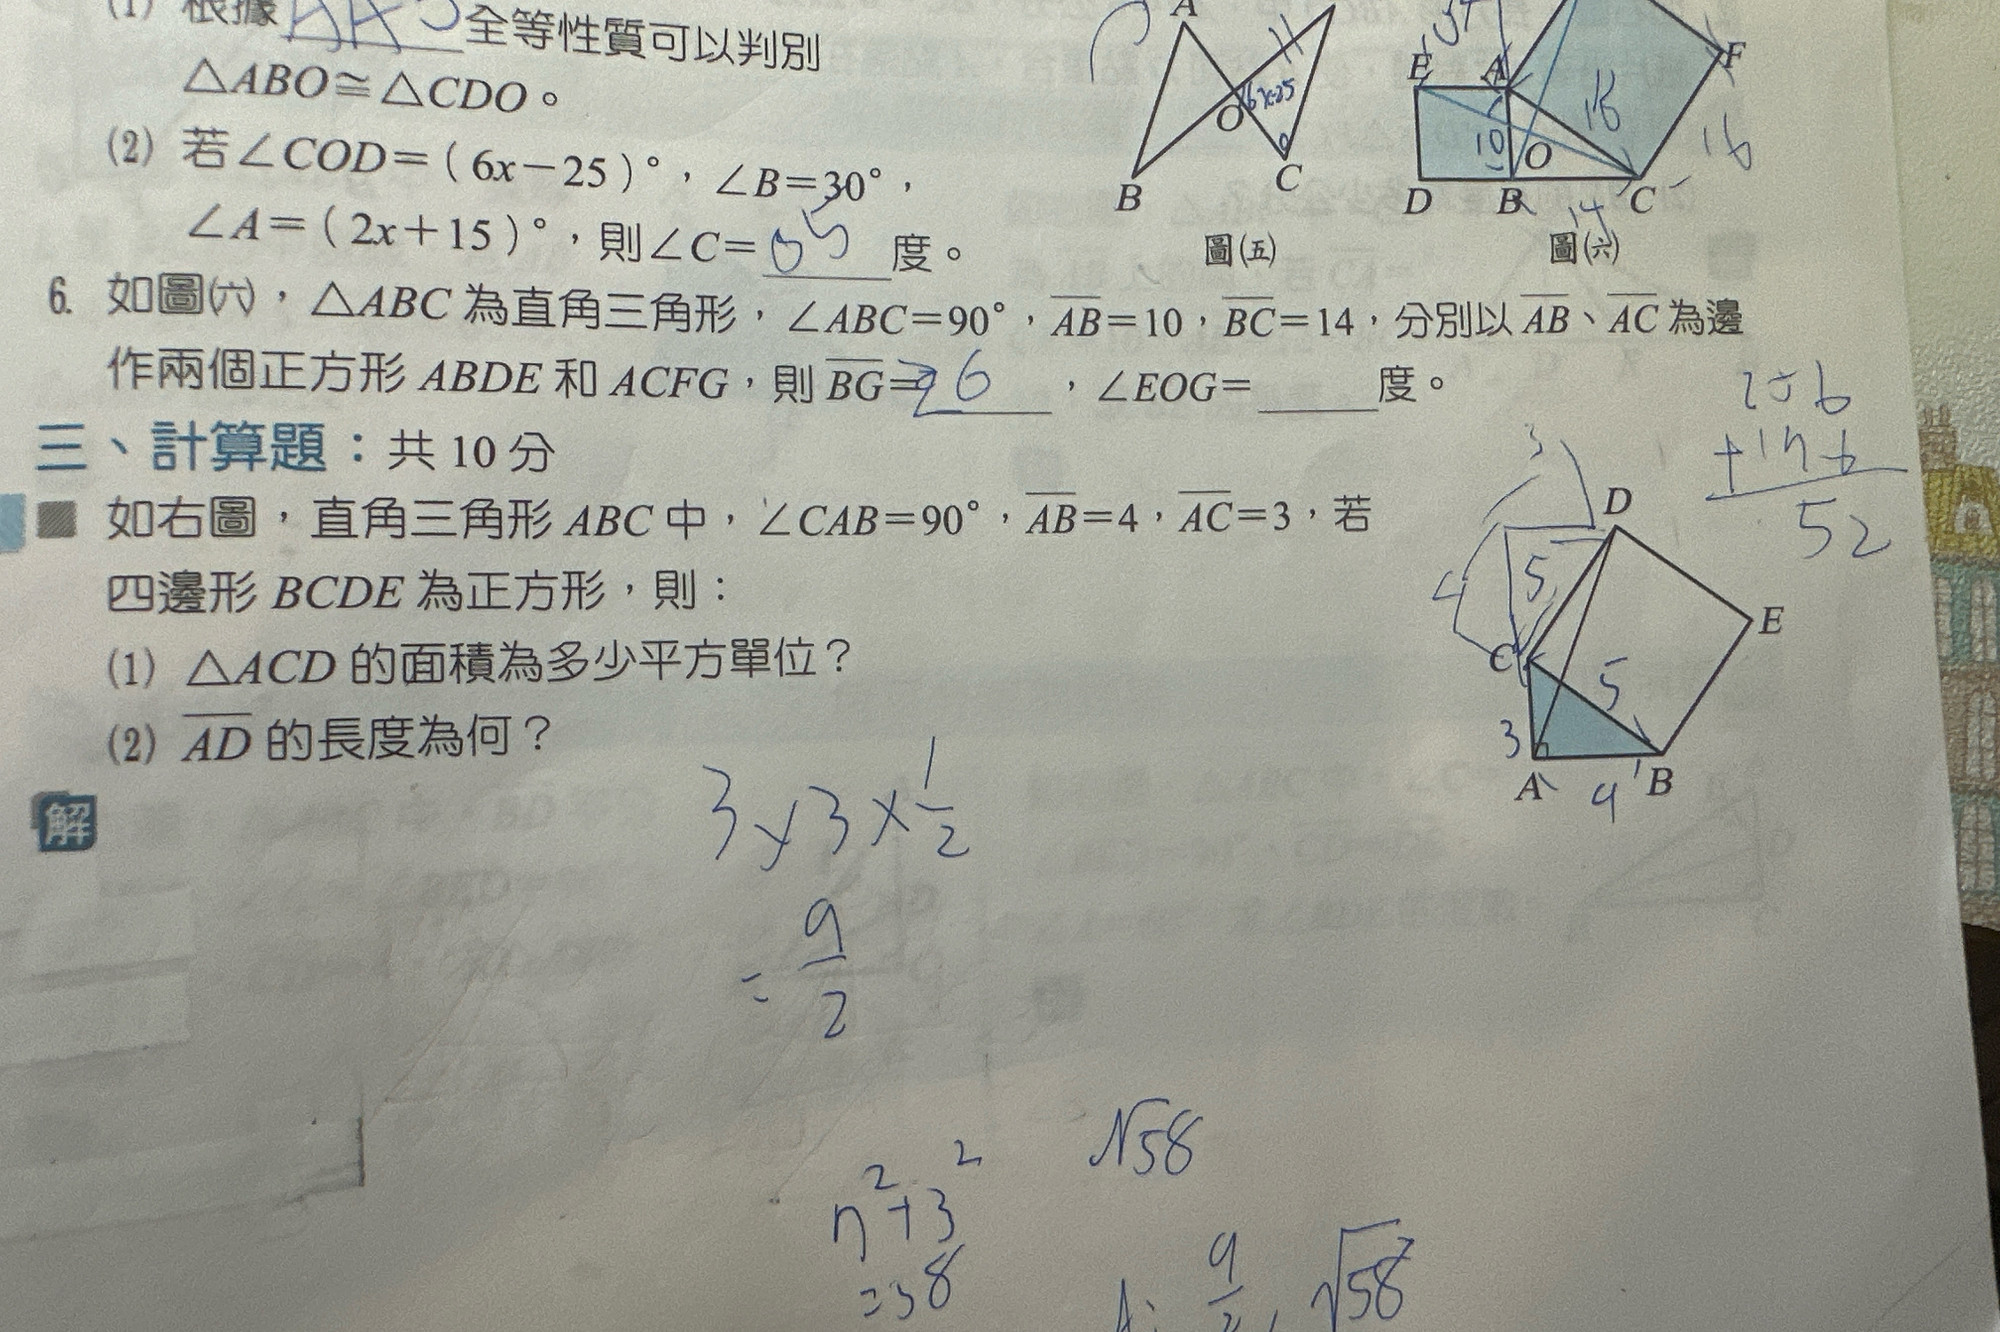 (1) 根據 全等性質可以判別
△ABO≅△CDO。
(2) 若∠COD=(6x-25)°,∠B=30°,
∠A=(2x+15)°,則∠C= 度。
A
O
6x-25
B
C
圖(五)
E
A
F
18
16
10
O
D
B
C
14
圖(六)
6. 如圖(六),△ABC 為直角三角形,∠ABC=90°,AB=10,BC=14,分別以 AB、AC 為邊
作兩個正方形 ABDE 和 ACFG,則 BG= 26 ,∠EOG= 度。
三、計算題:共 10 分
如右圖,直角三角形 ABC 中,∠CAB=90°,AB=4,AC=3,若
四邊形 BCDE 為正方形,則:
(1) △ACD 的面積為多少平方單位?
(2) AD 的長度為何?
52
3
D
5
E
C
5
3
A
4
B
解
3×3×1/2
=9/2
√58
A: 9/2, √58